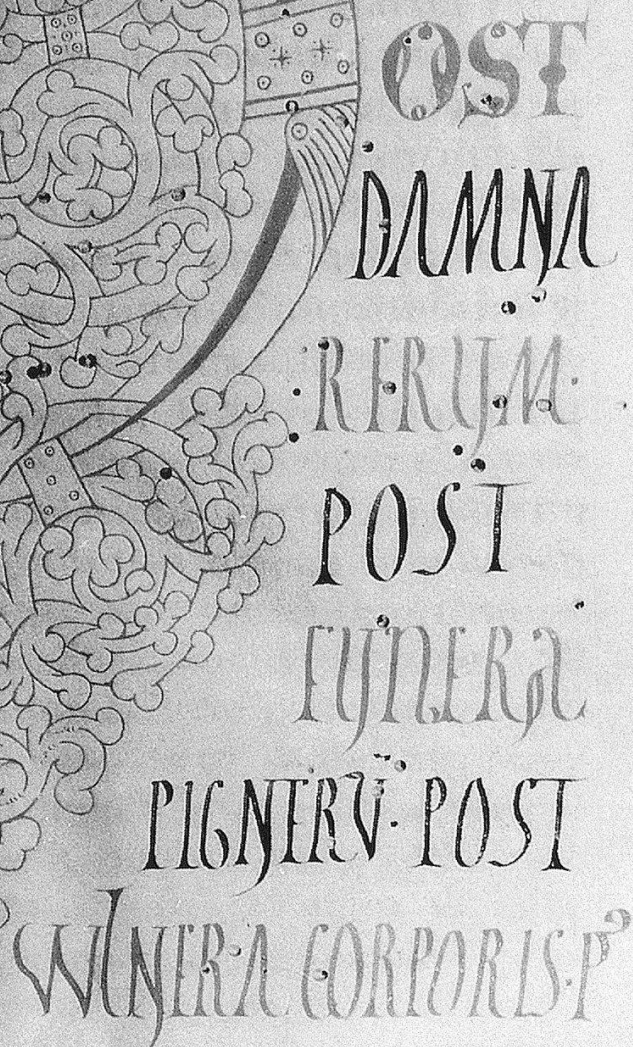 OST
DAMNA
RERUM·
POST
FUNERA
PIGNERŪ· POST
WLNERA CORPORIS· Pꝰ